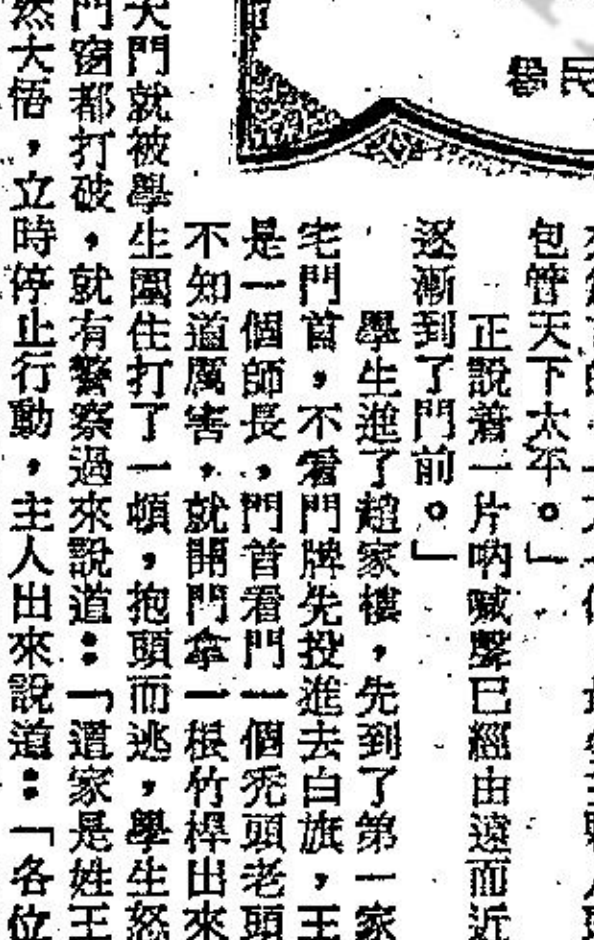 民學
包管天下太平。」
正說着一片吶喊聲已經由遠而近
逐漸到了門前。」
學生進了趙家樓，先到了第一家
宅門首，不看門牌先投進去白旗，王
是一個師長，門首看門一個禿頭老頭
不知道厲害，就開門拿一根竹桿出來
大門就被學生圍住打了一頓，抱頭而逃，學生怒
門窗都打破，就有警察過來說道：「這家是姓王
然大悟，立時停止行動，主人出來說道：「各位